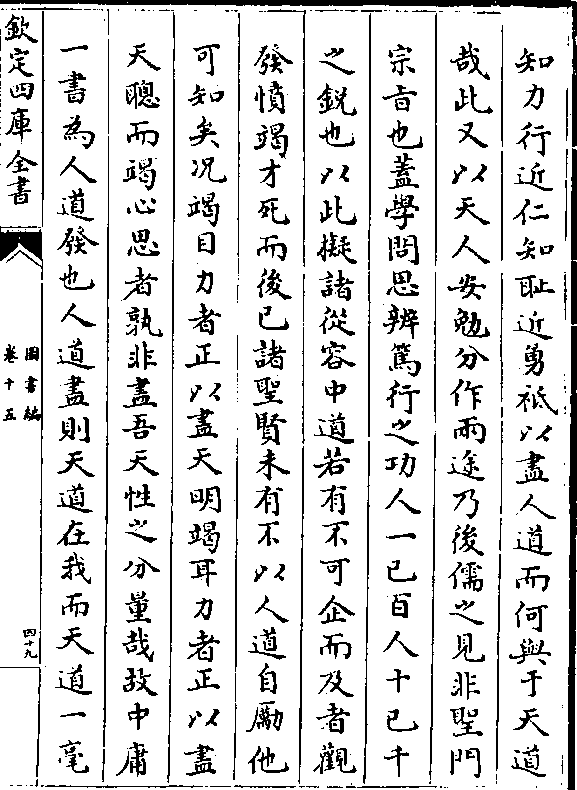 知力行近仁知恥近勇祗以盡人道而何與于天道
哉此又以天人安勉分作兩途乃後儒之見非聖門
宗旨也蓋學問思辨篤行之功人一已百人十已千
之鋭也以此擬諸從容中道若有不可企而及者觀
發憤竭才死而後已諸聖賢未有不以人道自勵他
可知矣况竭目力者正以盡天明竭耳力者正以盡
天聰而竭心思者孰非盡吾天性之分量哉故中庸
一書為人道發也人道盡則天道在我而天道一毫
欽定四庫全書
圖書編
卷十五
四十九